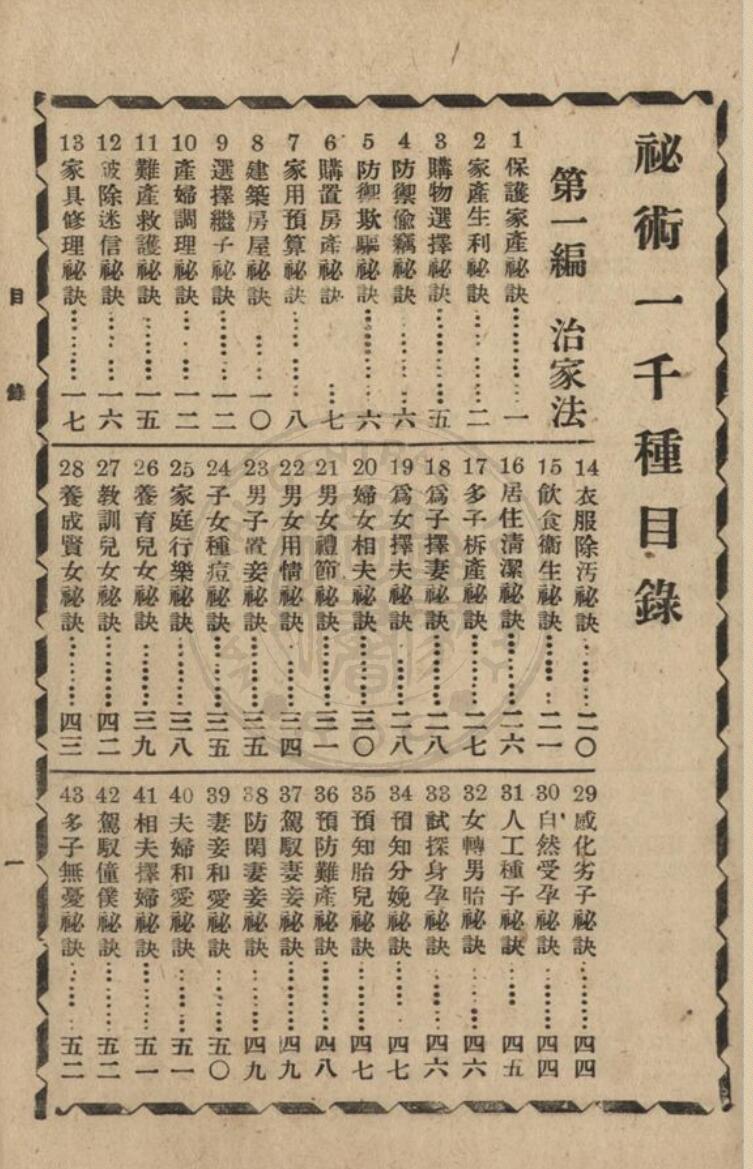 祕術一千種目錄
第一編　治家法
1 保護家產祕訣…………一
2 家產生利祕訣…………二
3 購物選擇祕訣…………五
4 防禦偸竊祕訣…………六
5 防禦欺騙祕訣…………六
6 購置房產祕訣…七
7 家用預算祕訣…………八
8 建築房屋祕訣……一〇
9 選擇繼子祕訣…………一二
10 產婦調理祕訣…………一二
11 難產救護祕訣…………一五
12 破除迷信祕訣…………一六
13 家具修理祕訣…………一七
14 衣服除汚祕訣…………二〇
15 飮食衞生祕訣…………二一
16 居住淸潔祕訣…………二六
17 多子析產祕訣…………二七
18 爲子擇妻祕訣…………二八
19 爲女擇夫祕訣…………二八
20 婦女相夫祕訣…………三〇
21 男女禮節祕訣…………三一
22 男女用情祕訣…………三四
23 男子置妾祕訣…………三五
24 子女種痘祕訣…………三五
25 家庭行樂祕訣…………三八
26 養育兒女祕訣…………三九
27 敎訓兒女祕訣…………四二
28 養成賢女祕訣…………四三
29 感化劣子祕訣…………四四
30 自然受孕祕訣…………四四
31 人工種子祕訣……四五
32 女轉男胎祕訣…………四六
33 試探身孕祕訣…………四六
34 預知分娩祕訣…………四七
35 預知胎兒祕訣…………四七
36 預防難產祕訣…………四八
37 駕馭妻妾祕訣…………四九
38 防閑妻妾祕訣…………四九
39 妻妾和愛祕訣…………五〇
40 夫婦和愛祕訣…………五一
41 相夫擇婦祕訣…………五一
42 駕馭僮僕祕訣…………五二
43 多子無憂祕訣…………五二
目錄
一